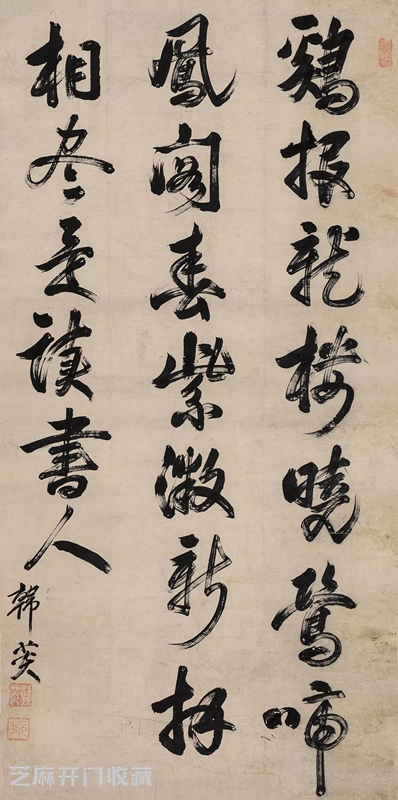 鷄報龍樓曉鶯啼
鳳閣春紫微新拜
相盡是讀書人
韓菼
芝麻开门收藏